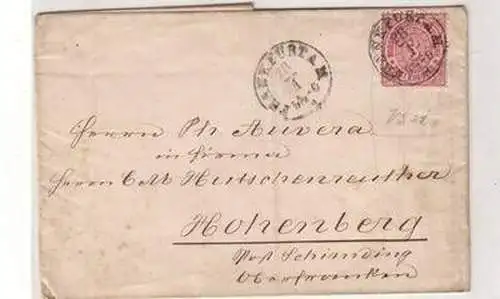 FRANKFURT A. M.
FRANKFURT A. M.
Herrn Ph Auvera
in Firma
Herren C. M. Hutschenreuther
Hohenberg
Post Schirnding
Oberfranken